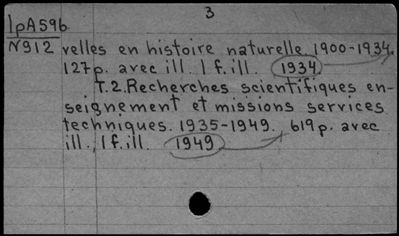 3
IpA596
N912 velles en histoire naturelle 1900-1934.
127p. avec ill. 1 f. ill. 1934
T.2. Recherches scientifiques en-
seignement et missions services
techniques. 1935-1949. 619p. avec
ill., 1 f. ill. 1949